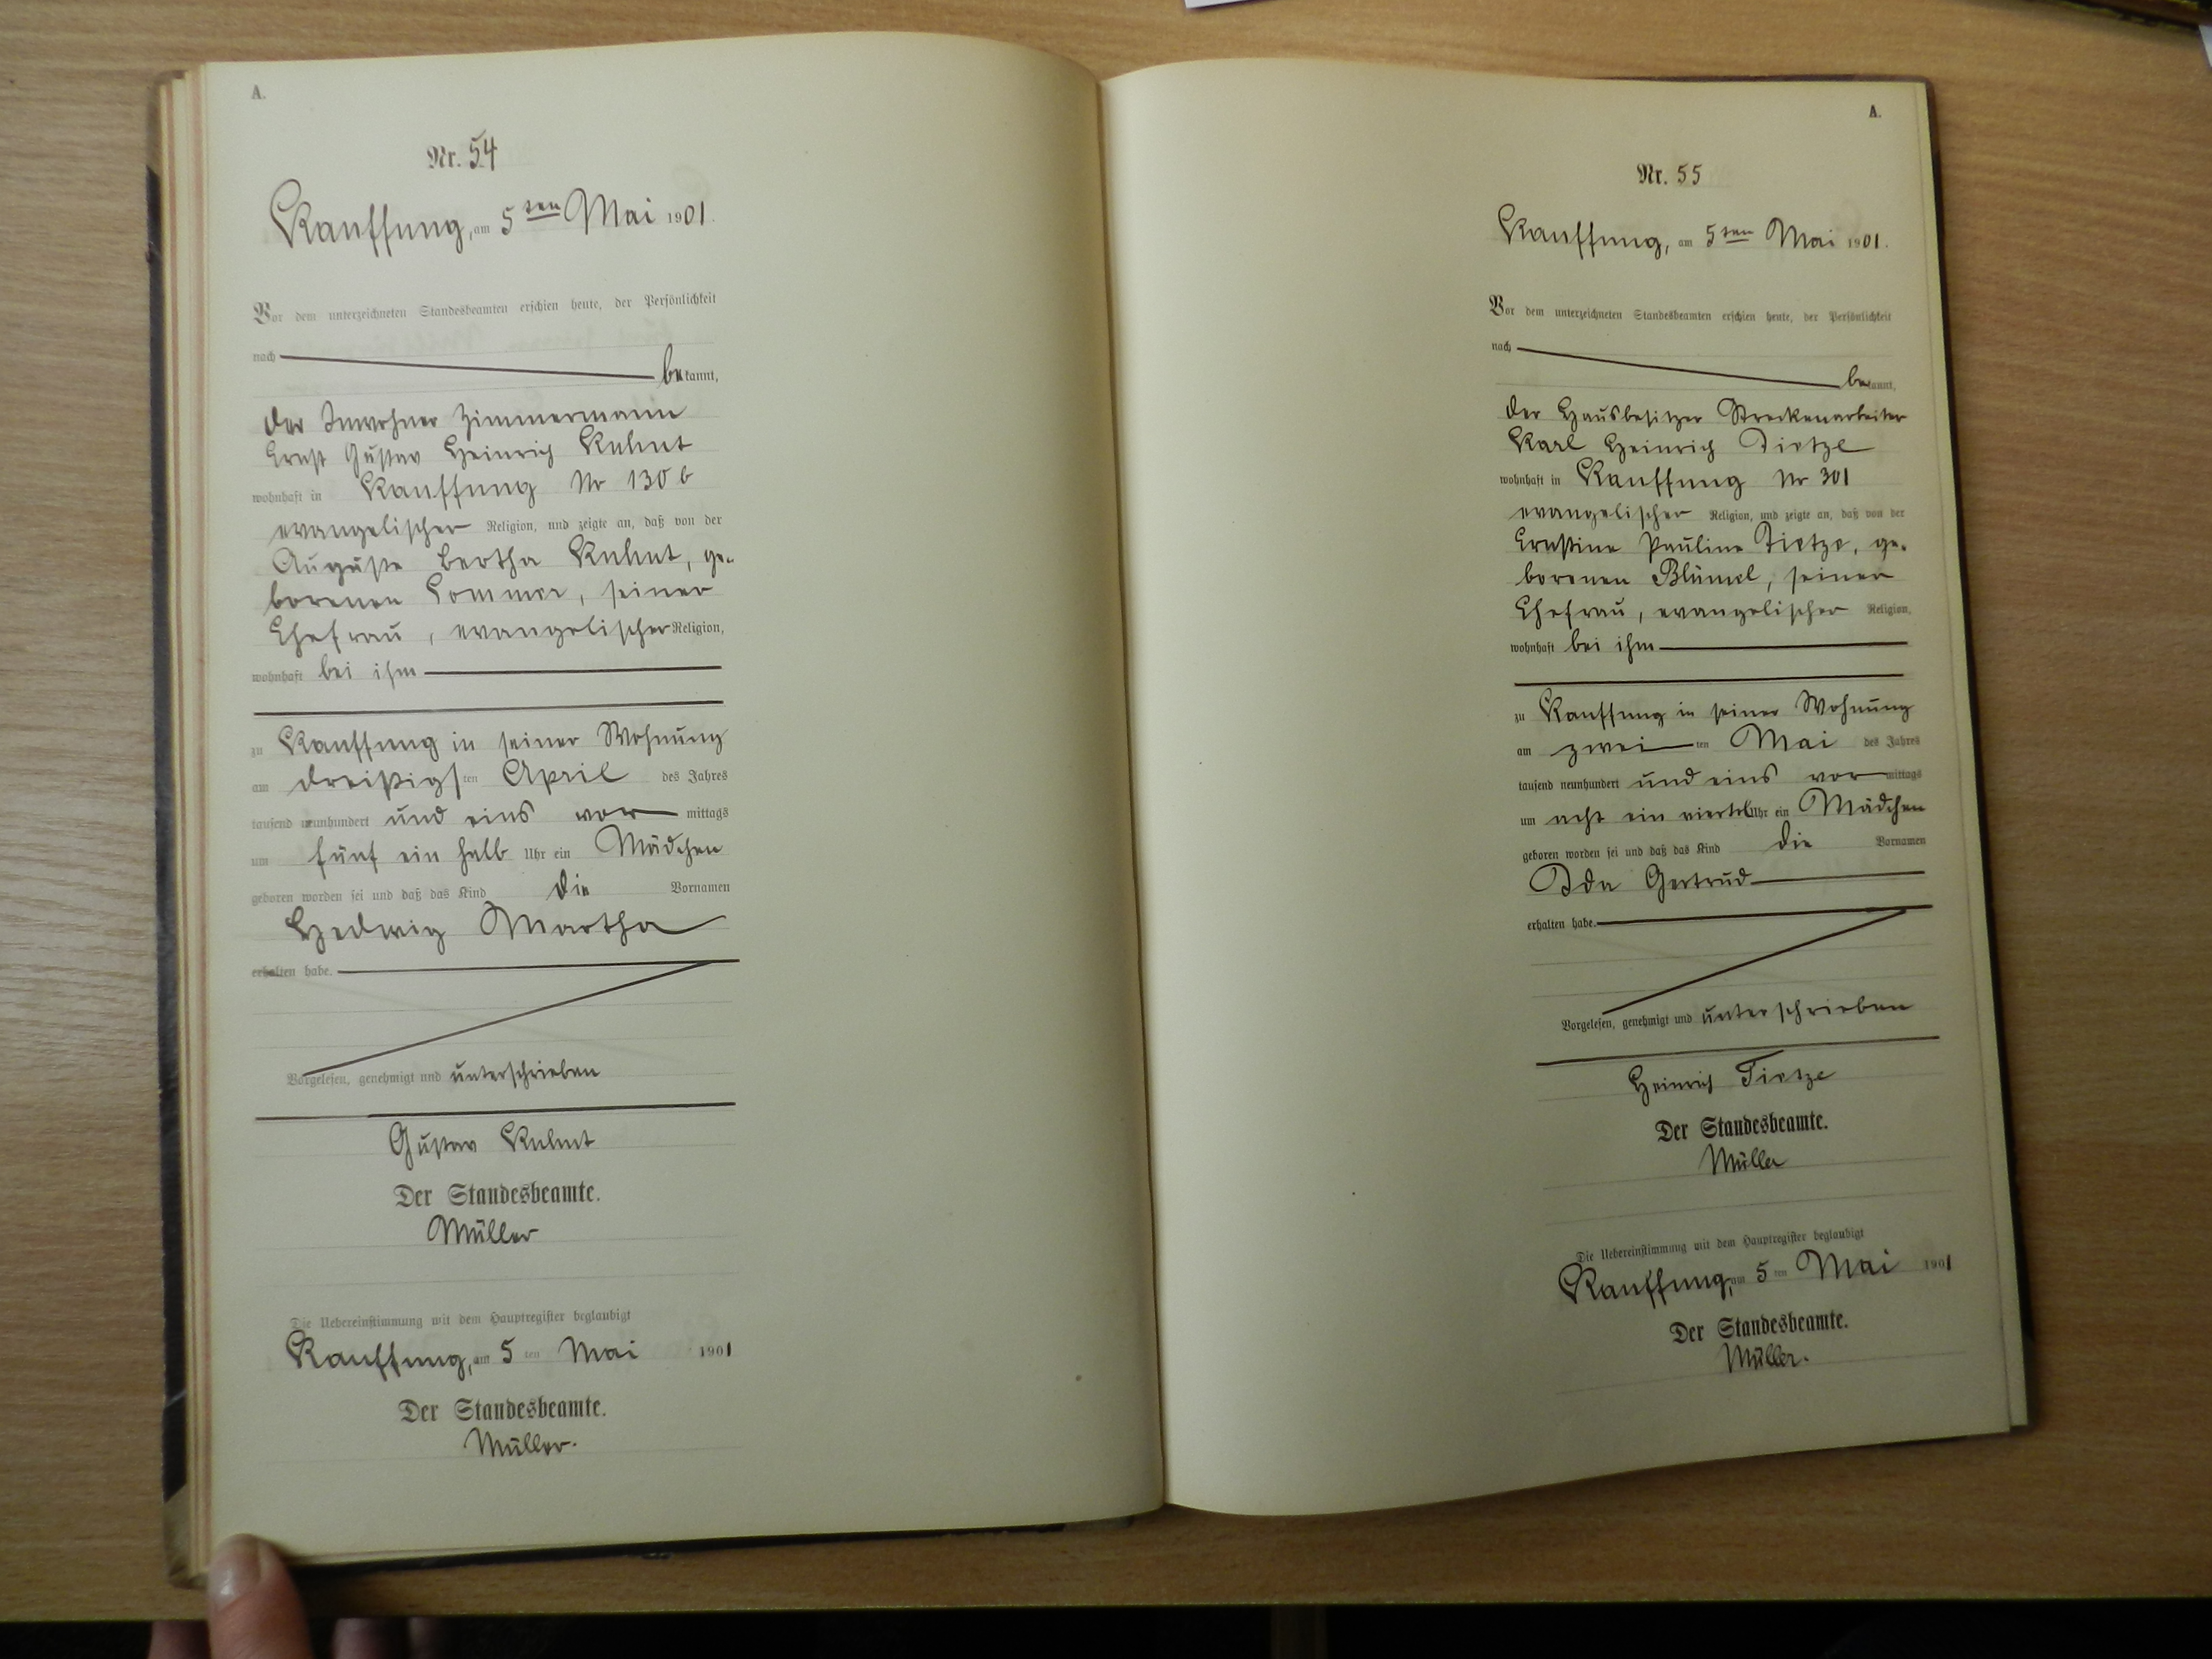 A.
Nr. 54
Kauffung, am 5ten Mai 1901.
Vor dem unterzeichneten Standesbeamten erschien heute, der Persönlichkeit
nach
bekannt,
der Inwohner Zimmermann
Ernst Gustav Heinrich Kuhnt
wohnhaft in Kauffung Nr 130 b
evangelischer Religion, und zeigte an, daß von der
Auguste Bertha Kuhnt, ge-
borenen Sommer, seiner
Ehefrau, evangelischer Religion,
wohnhaft bei ihm
zu Kauffung in seiner Wohnung
am dreißigsten April des Jahres
tausend neunhundert und eins vormittags
um fünf ein halb Uhr ein Mädchen
geboren worden sei und daß das Kind die Vornamen
Hedwig Martha
erhalten habe.
Vorgelesen, genehmigt und unterschrieben
Gustav Kuhnt
Der Standesbeamte.
Müller
Die Uebereinstimmung mit dem Hauptregister beglaubigt
Kauffung, am 5ten Mai 1901
Der Standesbeamte.
Müller.
A.
Nr. 55
Kauffung, am 5ten Mai 1901.
Vor dem unterzeichneten Standesbeamten erschien heute, der Persönlichkeit
nach
bekannt,
der Hausbesitzer Streckenarbeiter
Karl Heinrich Tietze
wohnhaft in Kauffung Nr 301
evangelischer Religion, und zeigte an, daß von der
Ernstine Pauline Tietze, ge-
borenen Blümel, seiner
Ehefrau, evangelischer Religion,
wohnhaft bei ihm
zu Kauffung in seiner Wohnung
am zweiten Mai des Jahres
tausend neunhundert und eins vormittags
um acht ein viertel Uhr ein Mädchen
geboren worden sei und daß das Kind die Vornamen
Ida Gertrud
erhalten habe.
Vorgelesen, genehmigt und unterschrieben
Heinrich Tietze
Der Standesbeamte.
Müller
Die Uebereinstimmung mit dem Hauptregister beglaubigt
Kauffung, am 5ten Mai 1901
Der Standesbeamte.
Müller.